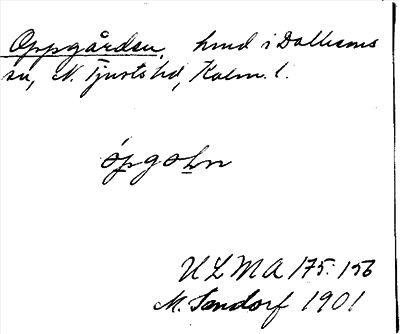 Oppgården, hmd i Dalhems
sn, N. Tjusts hd, Kalm. l.
öpgohn
ULMA 175:156
M. Sandorf 1901